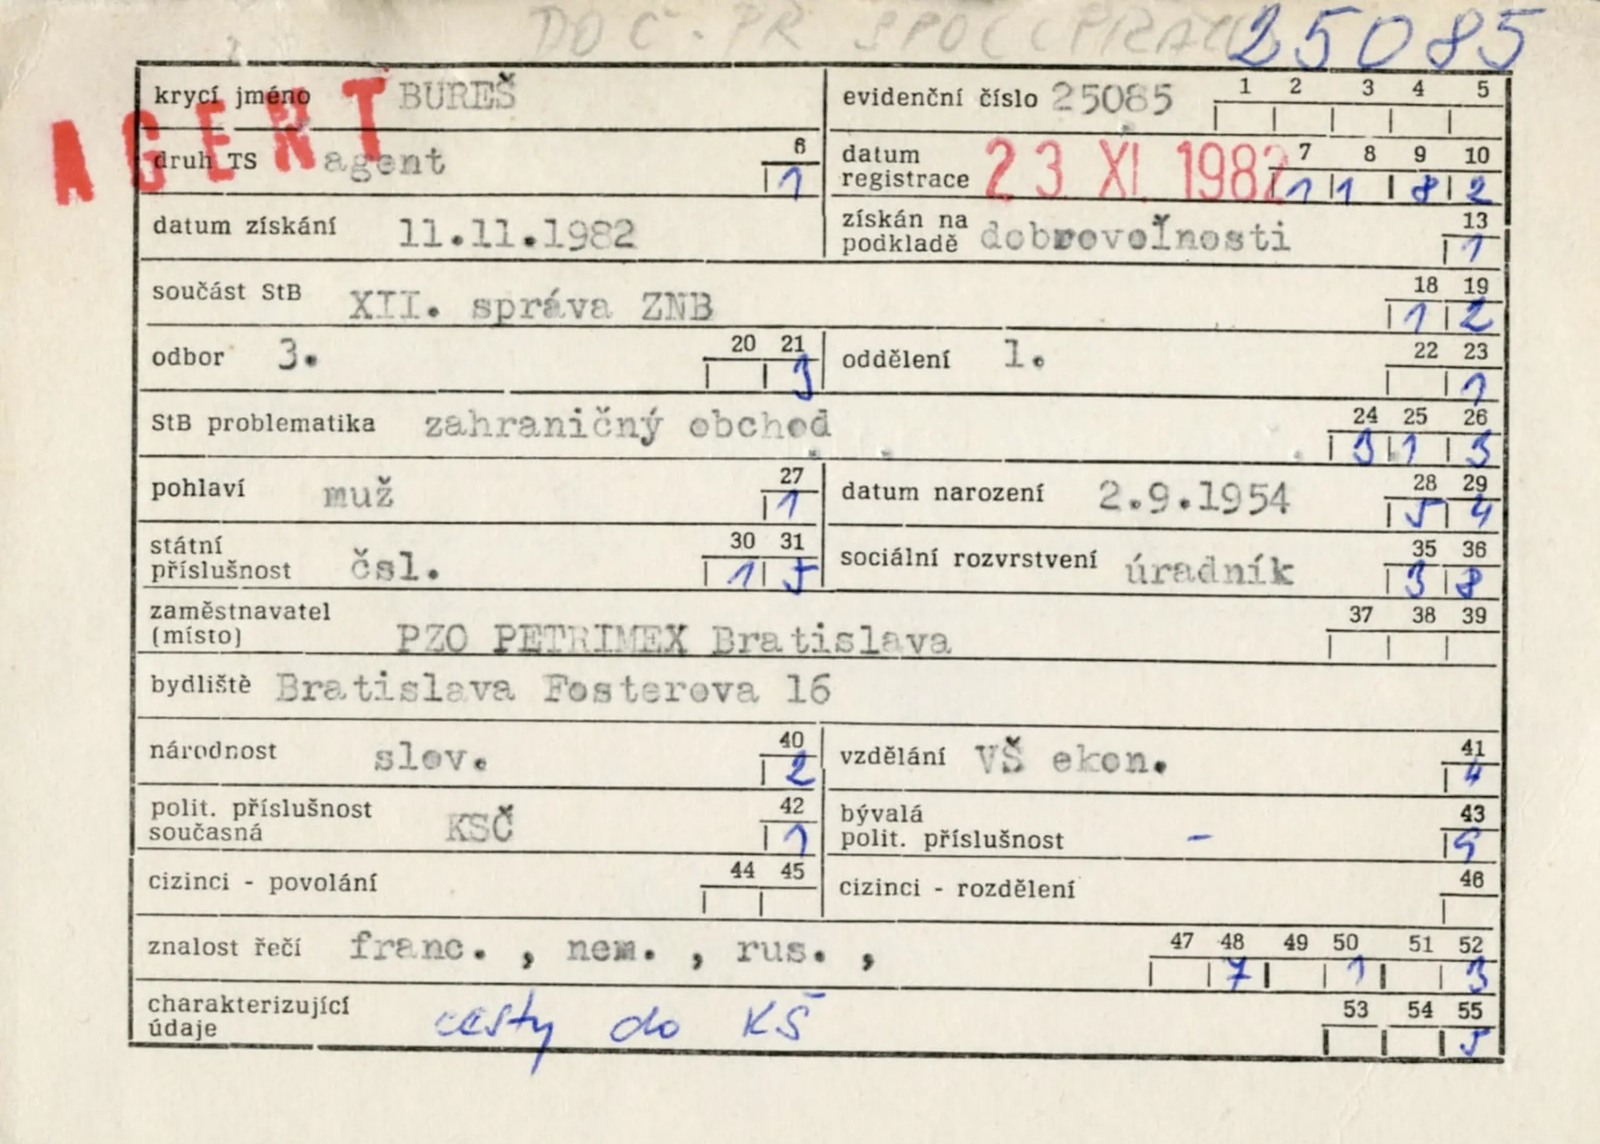 DOC. PŘ SPOLUPRÁCI 25085
AGENT
krycí jméno BUREŠ evidenční číslo 25085 1 2 3 4 5
druh TS agent 6 1 datum registrace 23 XI. 1982 7 8 9 10 1 1 8 2
datum získání 11.11.1982 získán na podkladě dobrovoľnosti 13 1
součást StB XII. správa ZNB 18 19 1 2
odbor 3. 20 21 3 oddělení 1. 22 23 1
StB problematika zahraničný obchod 24 25 26 3 1 3
pohlaví muž 27 1 datum narození 2.9.1954 28 29 5 4
státní příslušnost čsl. 30 31 1 5 sociální rozvrstvení úradník 35 36 3 8
zaměstnavatel (místo) PZO PETRIMEX Bratislava 37 38 39
bydliště Bratislava Fosterova 16
národnost slov. 40 2 vzdělání VŠ ekon. 41 4
polit. příslušnost současná KSČ 42 1 bývalá polit. příslušnost - 43 9
cizinci - povolání 44 45 cizinci - rozdělení 46
znalost řečí franc. , nem. , rus. , 47 48 49 50 51 52 7 1 3
charakterizující údaje cesty do KŠ 53 54 55 5